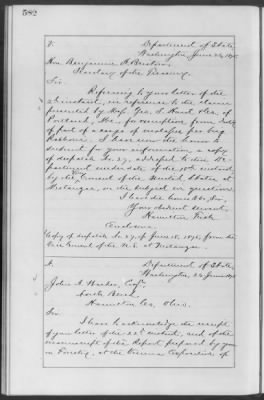 582
Department of State,
Washington, June 26, 187
Hon. Benjamin H. Bristow,
Secretary of the Treasury.
Sir:
Referring to your letter of the
instant, in reference to the claim
presented by Geo. S. Hunt, Esq. of
Portland, Me., for exemption from duty
of part of a cargo of molasses per brig
I have now the honor to
submit for your information, a copy
of despatch No. 27, addressed to this De-
partment under date of the 15th instant
by the Consul of the United States, at
Matanzas, on the subject in question.
I have the honor &c,
Your obedient servant,
Hamilton Fish
Enclosure:
Copy of despatch No. 27, of June 15, 1876, from the
Consul of the U.S. at Matanzas.
Department of State,
Washington, 26 June 187
John A. Warder, Esqr,
North Bend,
Hamilton Co, Ohio.
Sir:
I have to acknowledge the receipt
of your letter of the 22d instant, and of the
manuscript of the Report prepared by you
on Forestry, at the Vienna Exposition of